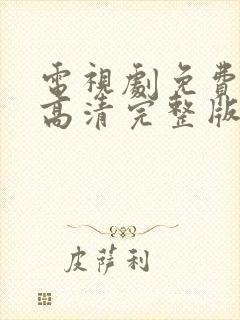 電視劇免費
高清完整版
皮薩利